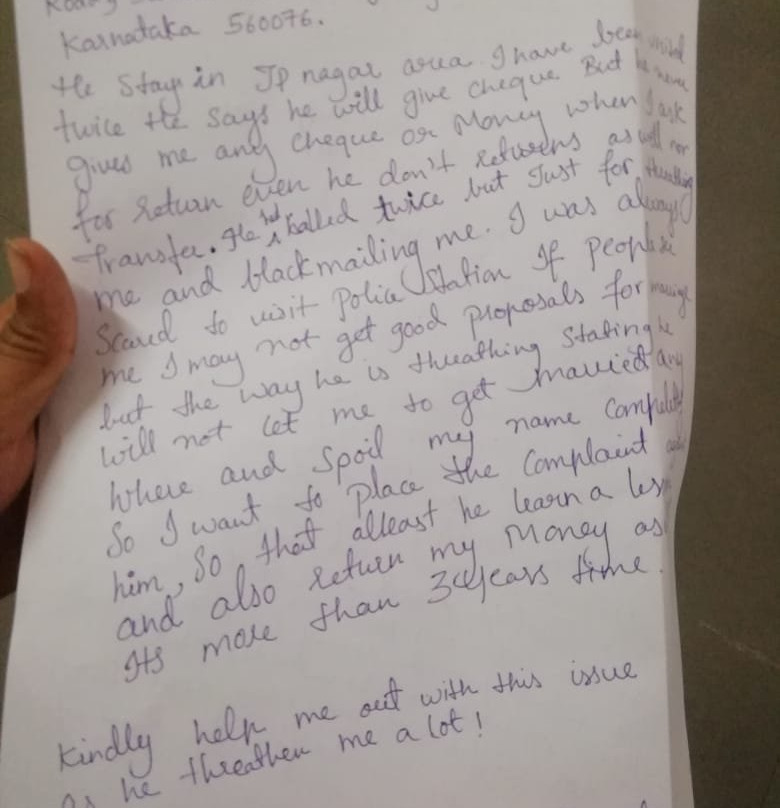 Karnataka 560076.
He Stay in JP nagar area. I have been
twice He Says he will give cheque But he never
gives me any cheque or Money when I ask
for return even he don't returns as well nor
transfer. He had called twice but Just for threathing
me and blackmailing me. I was always
Scared to visit Police Station If People
me I may not get good proposals for marriage
but the way he is threathing Stating he
will not let me to get married any
where and Spoil my name Completely
So I want to Place the Complaint
him, So that atleast he learn a les
and also return my Money as
Its more than 3 years time.
Kindly help me out with this issue
As he threathen me a lot!